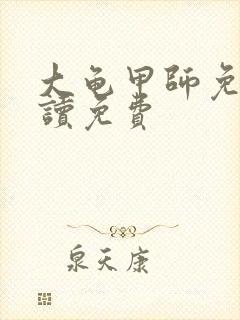 大龟甲師免
讀免費
泉天康